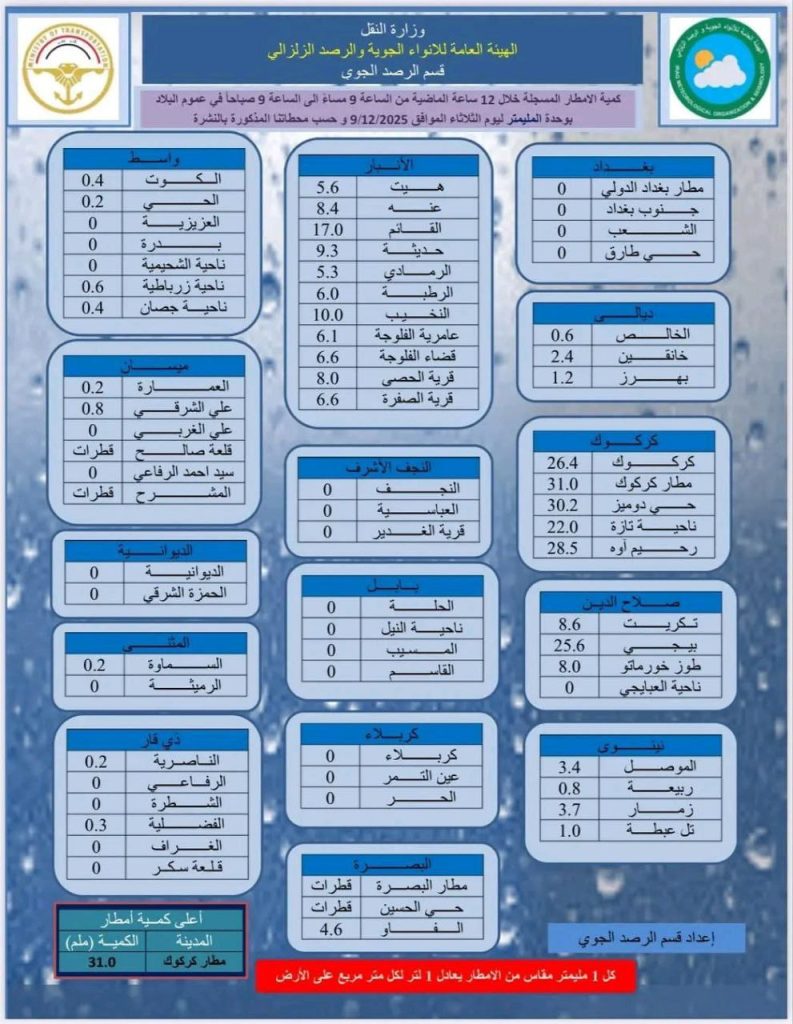 وزارة النقل
الهيئة العامة للانواء الجوية والرصد الزلزالي
قسم الرصد الجوي
MINISTRY OF TRANSPORTATION
الهيئة العامة للانواء الجوية والرصد الزلزالي
IRAQI METEOROLOGICAL ORGANIZATION & SEISMOLOGY
كمية الامطار المسجلة خلال 12 ساعة الماضية من الساعة 9 مساءً الى الساعة 9 صباحاً في عموم البلاد
بوحدة المليمتر ليوم الثلاثاء الموافق 9/12/2025 و حسب محطاتنا المذكورة بالنشرة
بغداد
مطار بغداد الدولي 0
جنوب بغداد 0
الشعب 0
حي طارق 0
ديالى
الخالص 0.6
خانقين 2.4
بهرز 1.2
كركوك
كركوك 26.4
مطار كركوك 31.0
حي دوميز 30.2
ناحية تازة 22.0
رحيم آوه 28.5
صلاح الدين
تكريت 8.6
بيجي 25.6
طوز خورماتو 8.0
ناحية العبايجي 0
نينوى
الموصل 3.4
ربيعة 0.8
زمار 3.7
تل عبطة 1.0
إعداد قسم الرصد الجوي
الأنبار
هيت 5.6
عنه 8.4
القائم 17.0
حديثة 9.3
الرمادي 5.3
الرطبة 6.0
النخيب 10.0
عامرية الفلوجة 6.1
قضاء الفلوجة 6.6
قرية الحصى 8.0
قرية الصفرة 6.6
النجف الأشرف
النجف 0
العباسية 0
قرية الغدير 0
بابل
الحلة 0
ناحية النيل 0
المسيب 0
القاسم 0
كربلاء
كربلاء 0
عين التمر 0
الحر 0
البصرة
مطار البصرة قطرات
حي الحسين قطرات
الفاو 4.6
واسط
الكوت 0.4
الحي 0.2
العزيزية 0
بدرة 0
ناحية الشحيمية 0
ناحية زرباطية 0.6
ناحية جصان 0.4
ميسان
العمارة 0.2
علي الشرقي 0.8
علي الغربي 0
قلعة صالح قطرات
سيد احمد الرفاعي 0
المشرح قطرات
الديوانية
الديوانية 0
الحمزة الشرقي 0
المثنى
السماوة 0.2
الرميثة 0
ذي قار
الناصرية 0.2
الرفاعي 0
الشطرة 0
الفضلية 0.3
الغراف 0
قلعة سكر 0
أعلى كمية أمطار
المدينة الكمية (ملم)
مطار كركوك 31.0
كل 1 مليمتر مقاس من الامطار يعادل 1 لتر لكل متر مربع على الأرض